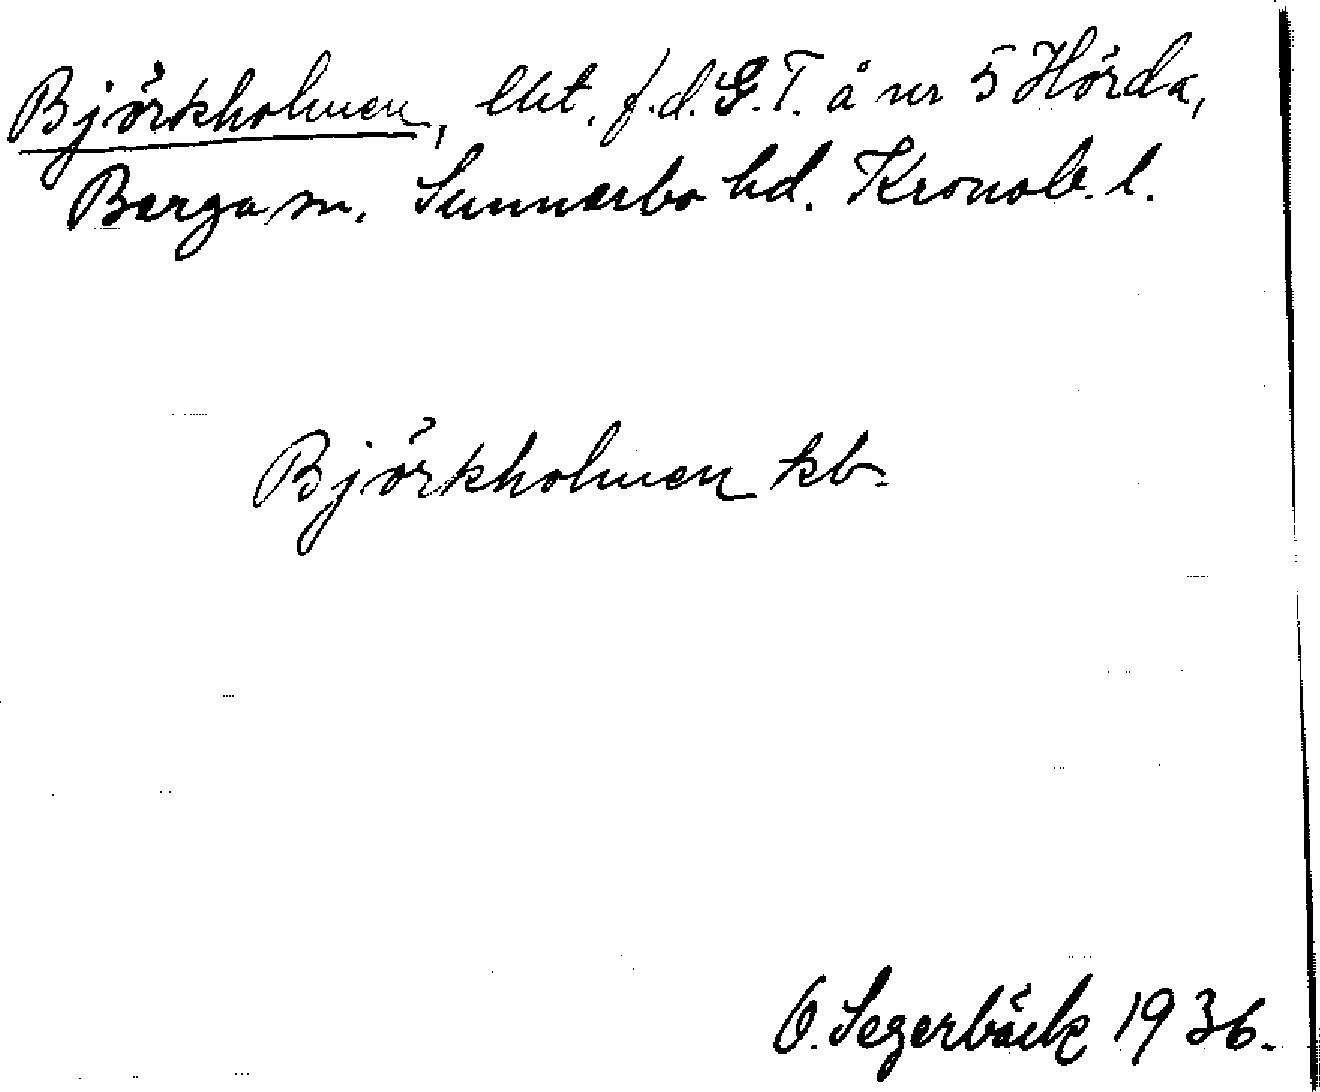 Björkholmen, lht. f.d. G.T. å nr 5 Hörda,
Berga sn. Sunnerbo hd. Kronob. l.
Björkholmen kb.
O. Segerbäck 1936.